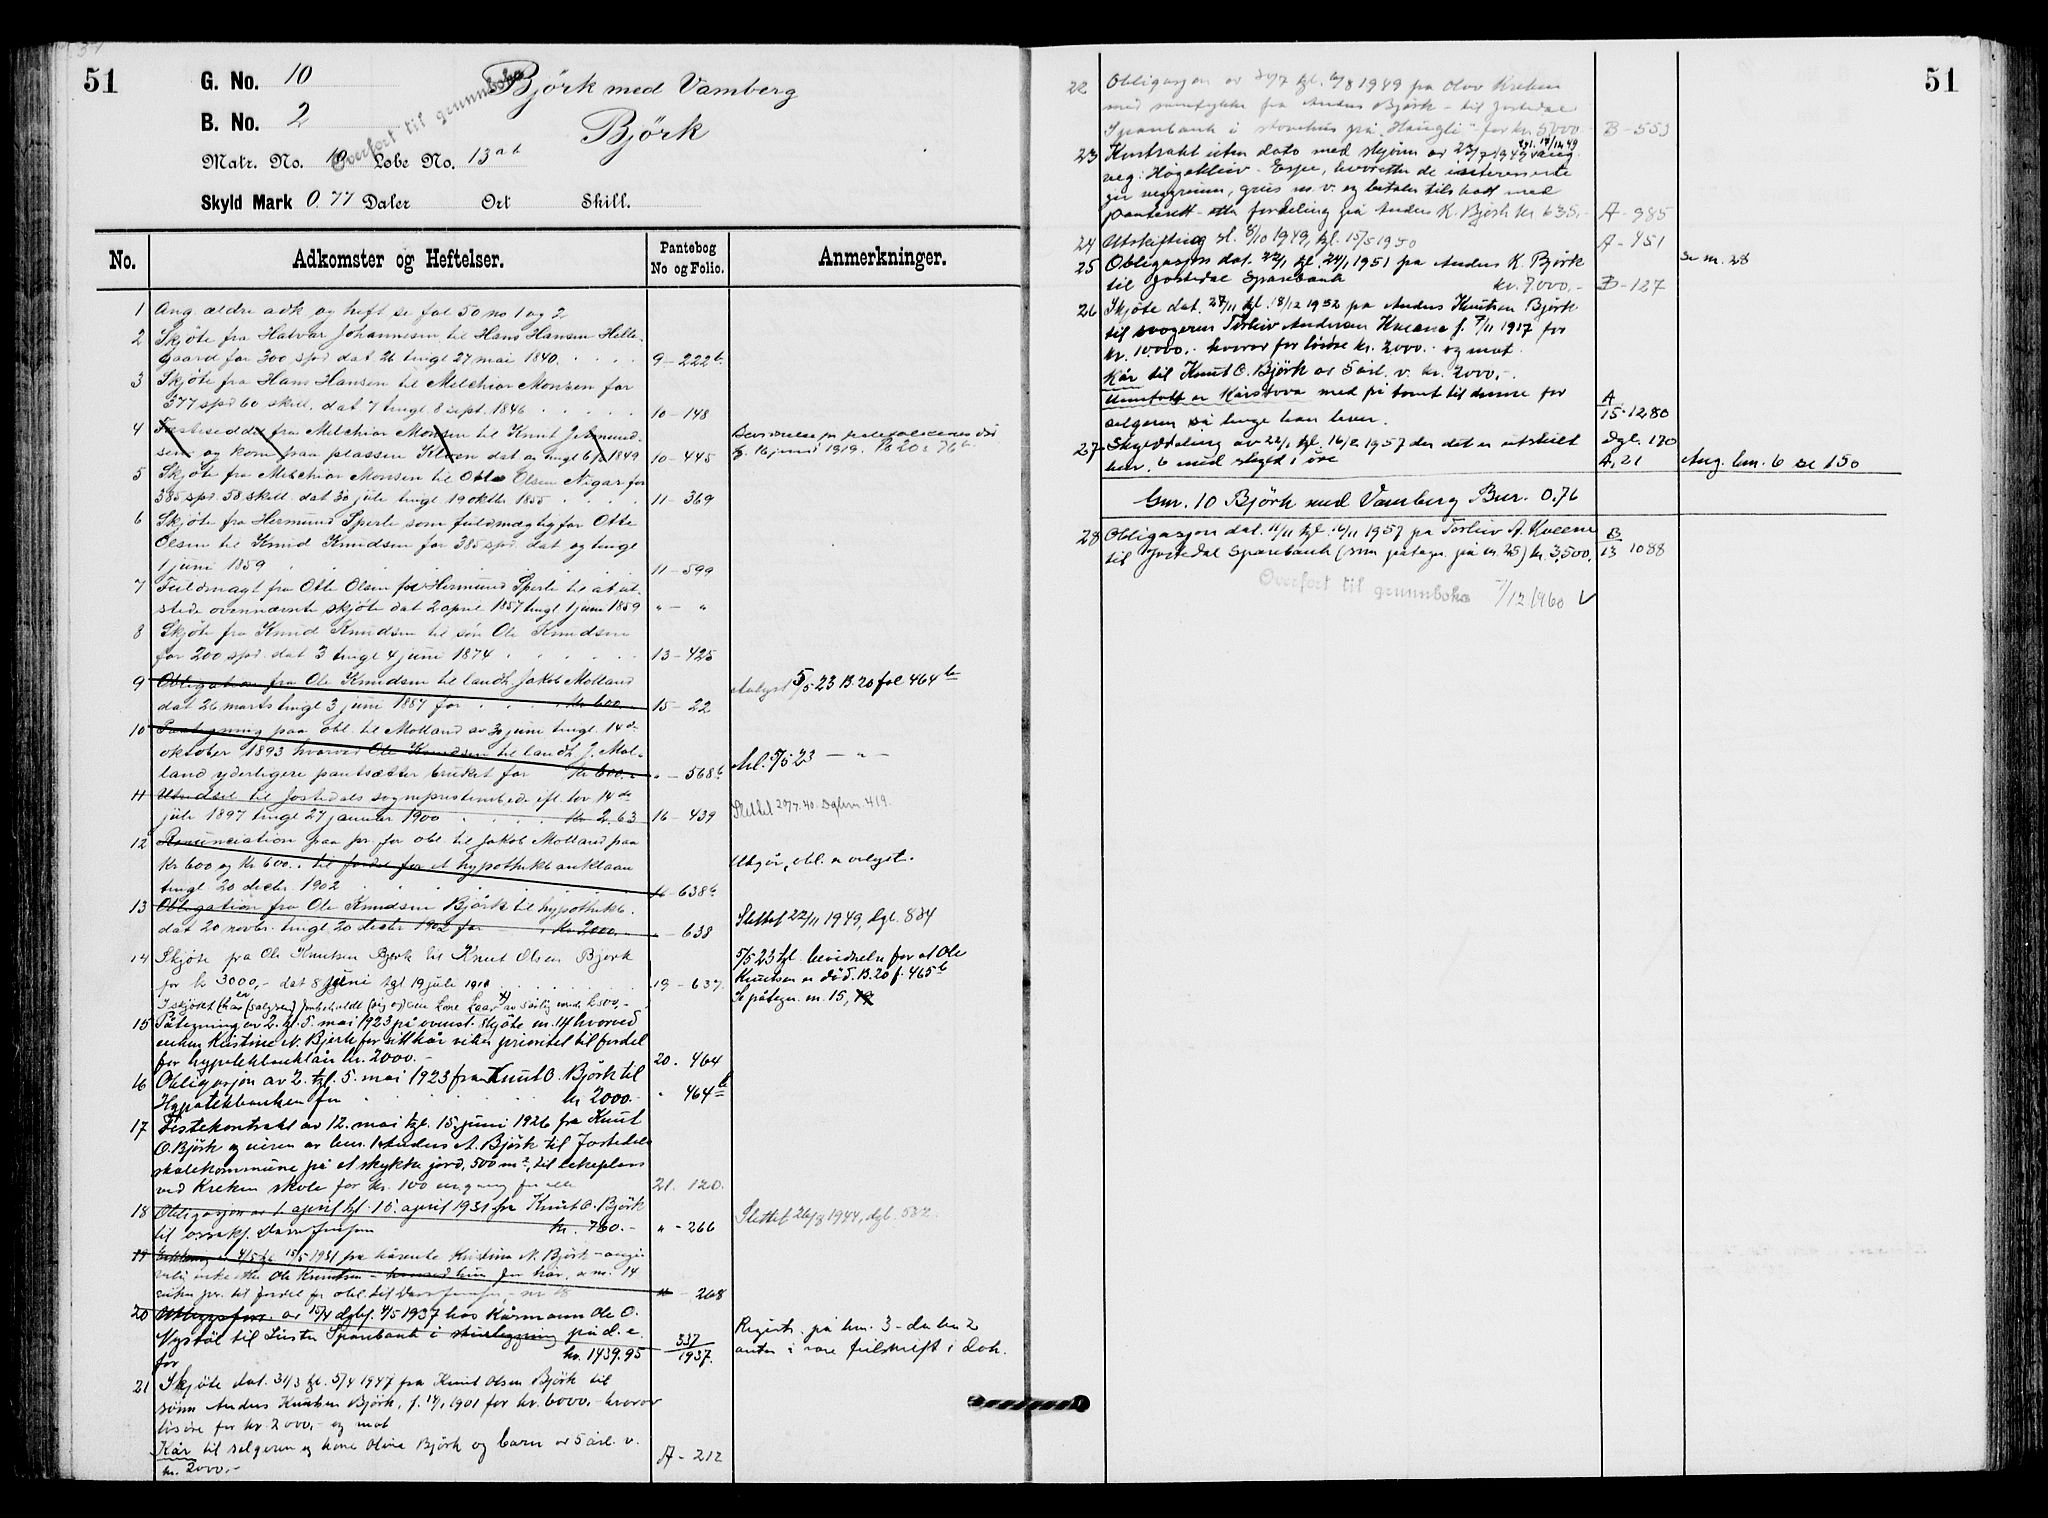 51
G. No. 10
B. No. 2
Matr. No. 10 Løbe No. 13 ab
Skyld Mark 0.77 Daler Ort Skill.
Overført til grunnboka
Bjørk med Vamberg
Bjørk
No. Adkomster og Heftelser. Pantebog No og Folio. Anmerkninger.
1 Ang ældre adk og heft se fol 50 no 1 og 2
2 Skjøte fra Halvar Johannesen til Hans Hansen Helle-
gaard for 300 spd dat 26 tingl 27 mai 1840. 9 - 222b
3 Skjøte fra Hans Hansen til Melchior Monsen for
377 spd 60 skill. dat 7 tingl 8 sept. 1846 10 - 148
4 Festeseddel fra Melchior Monsen til Knut Asmund-
sen og kone paa plassen dat og tingl 6/6 1849 10 - 445
tgl. 16 juni 1919. B 20 s 76b
5 Skjøte fra Melchior Monsen til Otte Olsen Nigar for
385 spd 58 skill. dat 30 juli tingl 19 oktbr 1855 11 - 369
6 Skjøte fra Hermund Sperle som fuldmægtig for Otte
Olsen til Knud Knudsen for 385 spd. dat og tingl
1 juni 1859 11 - 599
7 Fuldmagt fra Otte Olsen for Hermund Sperle til at ut-
stede ovennævnte skjøte dat 2 april 1857 tingl 1 juni 1859 " - "
8 Skjøte fra Knud Knudsen til søn Ole Knudsen
for 200 spd. dat 3 tingl 4 juni 1874 13 - 425
9 Obligation fra Ole Knudsen til landh. Jakob Molland
dat 26 marts tingl 3 juni 1887 for Kr 600.- 15 - 22
Avlyst 5/5 23 B 20 fol 464b
10 Paategning paa obl. til Molland av 30 juni tingl. 14de
oktober 1893 hvorved Ole Knudsen til landh. J. Mol-
land yderligere pantsætter bruket for Kr 600.- " - 568b
Avl. 5/5 23 — " —
11 Utredsel til Jostedals sogneprestembede ifl. lov 14de
juli 1897 tingl 27 januar 1900 Kr 2.63 16 - 439
Slettet 20/7. 40. Dgbnr. 419.
12 Renunciation paa pr. for obl. til Jakob Molland paa
Kr 600 og Kr 600.- til fordel for et hypothekbanklaan
tingl 20 decbr. 1902 16 - 638b
Utgår, obl. er avlyst.
13 Obligation fra Ole Knudsen Bjørk til hypothekb.
dat 20 novbr. tingl 20 decbr 1902 for Kr 2000.- " - 638
Slettet 22/11 1949, Dgb. 884
14 Skjøte fra Ole Knutsen Bjørk til Knut Olsen Bjørk
for kr 3000,- dat 8 juni tgl 19 juli 1918 19 - 637
5/5 23 tgl. bevidnelse for at Ole
Knutsen er død. B. 20 f. 465b
Se påtegn. nr. 15, 19
15 Påtegning av 2. tgl. 5. mai 1923 på ovenst. skjøte nr. 14 hvorved
enken Kristine N. Bjørk for sitt kår viker prioritet til fordel
for hypotekbanklån kr. 2000.- 20. 464
16 Obligasjon av 2. tgl. 5. mai 1923 fra Knut O. Bjørk til
Hypotekbanken for kr 2000.- " 464b
17 Festekontrakt av 12. mai tgl. 15. juni 1926 fra Knut
O. Bjørk og eieren av bnr. 1 Anders A. Bjørk til Jostedals
skolekommune på et stykke jord, 500 m², til lekeplass
ved Kreken skole for kr. 100 en gang for alle 21. 120.
18 Obligasjon av 1. april tgl. 10. april 1931 fra Knut O. Bjørk
til kr. 700.- " - 266
Slettet 26/8 1944, dgb. 582.
19 4/5 tgl. 15/5 1931 fra kårenke Kristina N. Bjørk -
enke etter Ole Knutsen - for kår, se nr. 14
viker pr. til fordel for obl. til nr 18 " - 268
20 Utleggsforr. av 15/4 dgbf. 4/5 1937 hos Kårmann Ole O.
til Luster Sparebank i på d. e.
for kr. 1439.95 337/1937.
Registr. på bnr. 3 - da bnr 2
antas i være feilskrift i dok.
21 Skjøte dat. 31/3 tgl. 5/4 1947 fra Knut Olsen Bjørk til
sønn Anders Knutsen Bjørk, f. 1901 for kr. 6000.- hvorav
løsøre for kr. 2000,- og mot
Kår til selgeren og kone Oline Bjørk og barn av 5 årl. v.
kr. 2000,- A - 212
51
22 Obligasjon av tgl. 1949 på Olav Kreken
med samtykke fra Anders Bjørk - til Jostedal
Sparebank i stovehus på "Haugli" for kr. 5000.- B - 553
23 Kontrakt uten dato med skjønn av 23/7 1949 tgl. 14/12 49 ang.
veg: - Espe, hvoretter de interesserte
gir veggrunn, grus m. v. og betaler tilskott med
panterett - etter fordeling på Anders K. Bjørk kr 635.- A - 985
24 Utskifting sl. 8/10 1949, tgl. 15/5 1950 A - 451
25 Obligasjon dat. 22/1 tgl. 24/1 1951 på Anders K. Bjørk
til Jostedal Sparebank kr. 7000,- B - 127
se nr. 28
26 Skjøte dat. 27/11 tgl. 18/12 1952 på Anders Knutsen Bjørk
til svogeren Torleiv Andersen Kveane f. 7/11 1917 for
kr. 10.000.- hvorav for løsøre kr. 2000.- og mot
Kår til Knut O. Bjørk av 5 årl. v. kr. 2000,-.
Unntatt er Kårstova med på tomt til denne for
selgeren så lenge han lever. A/15 - 1280
27 Skylddeling av 22/1 tgl. 16/2 1957 der det er utskilt
bnr. 6 med skyld 1 øre Dgb. 170 A, 21
Ang. bnr. 6 se 150
Gnr. 10 Bjørk med Vamberg Bnr. 0.76
28 Obligasjon dat. 11/11 tgl. 14/11 1957 på Torleiv A. Kveane
til Jostedal Sparebank (som påtegn. på nr. 25) kr. 3,500. B/13 1088
Overført til grunnboka 7/12 1960 ✓